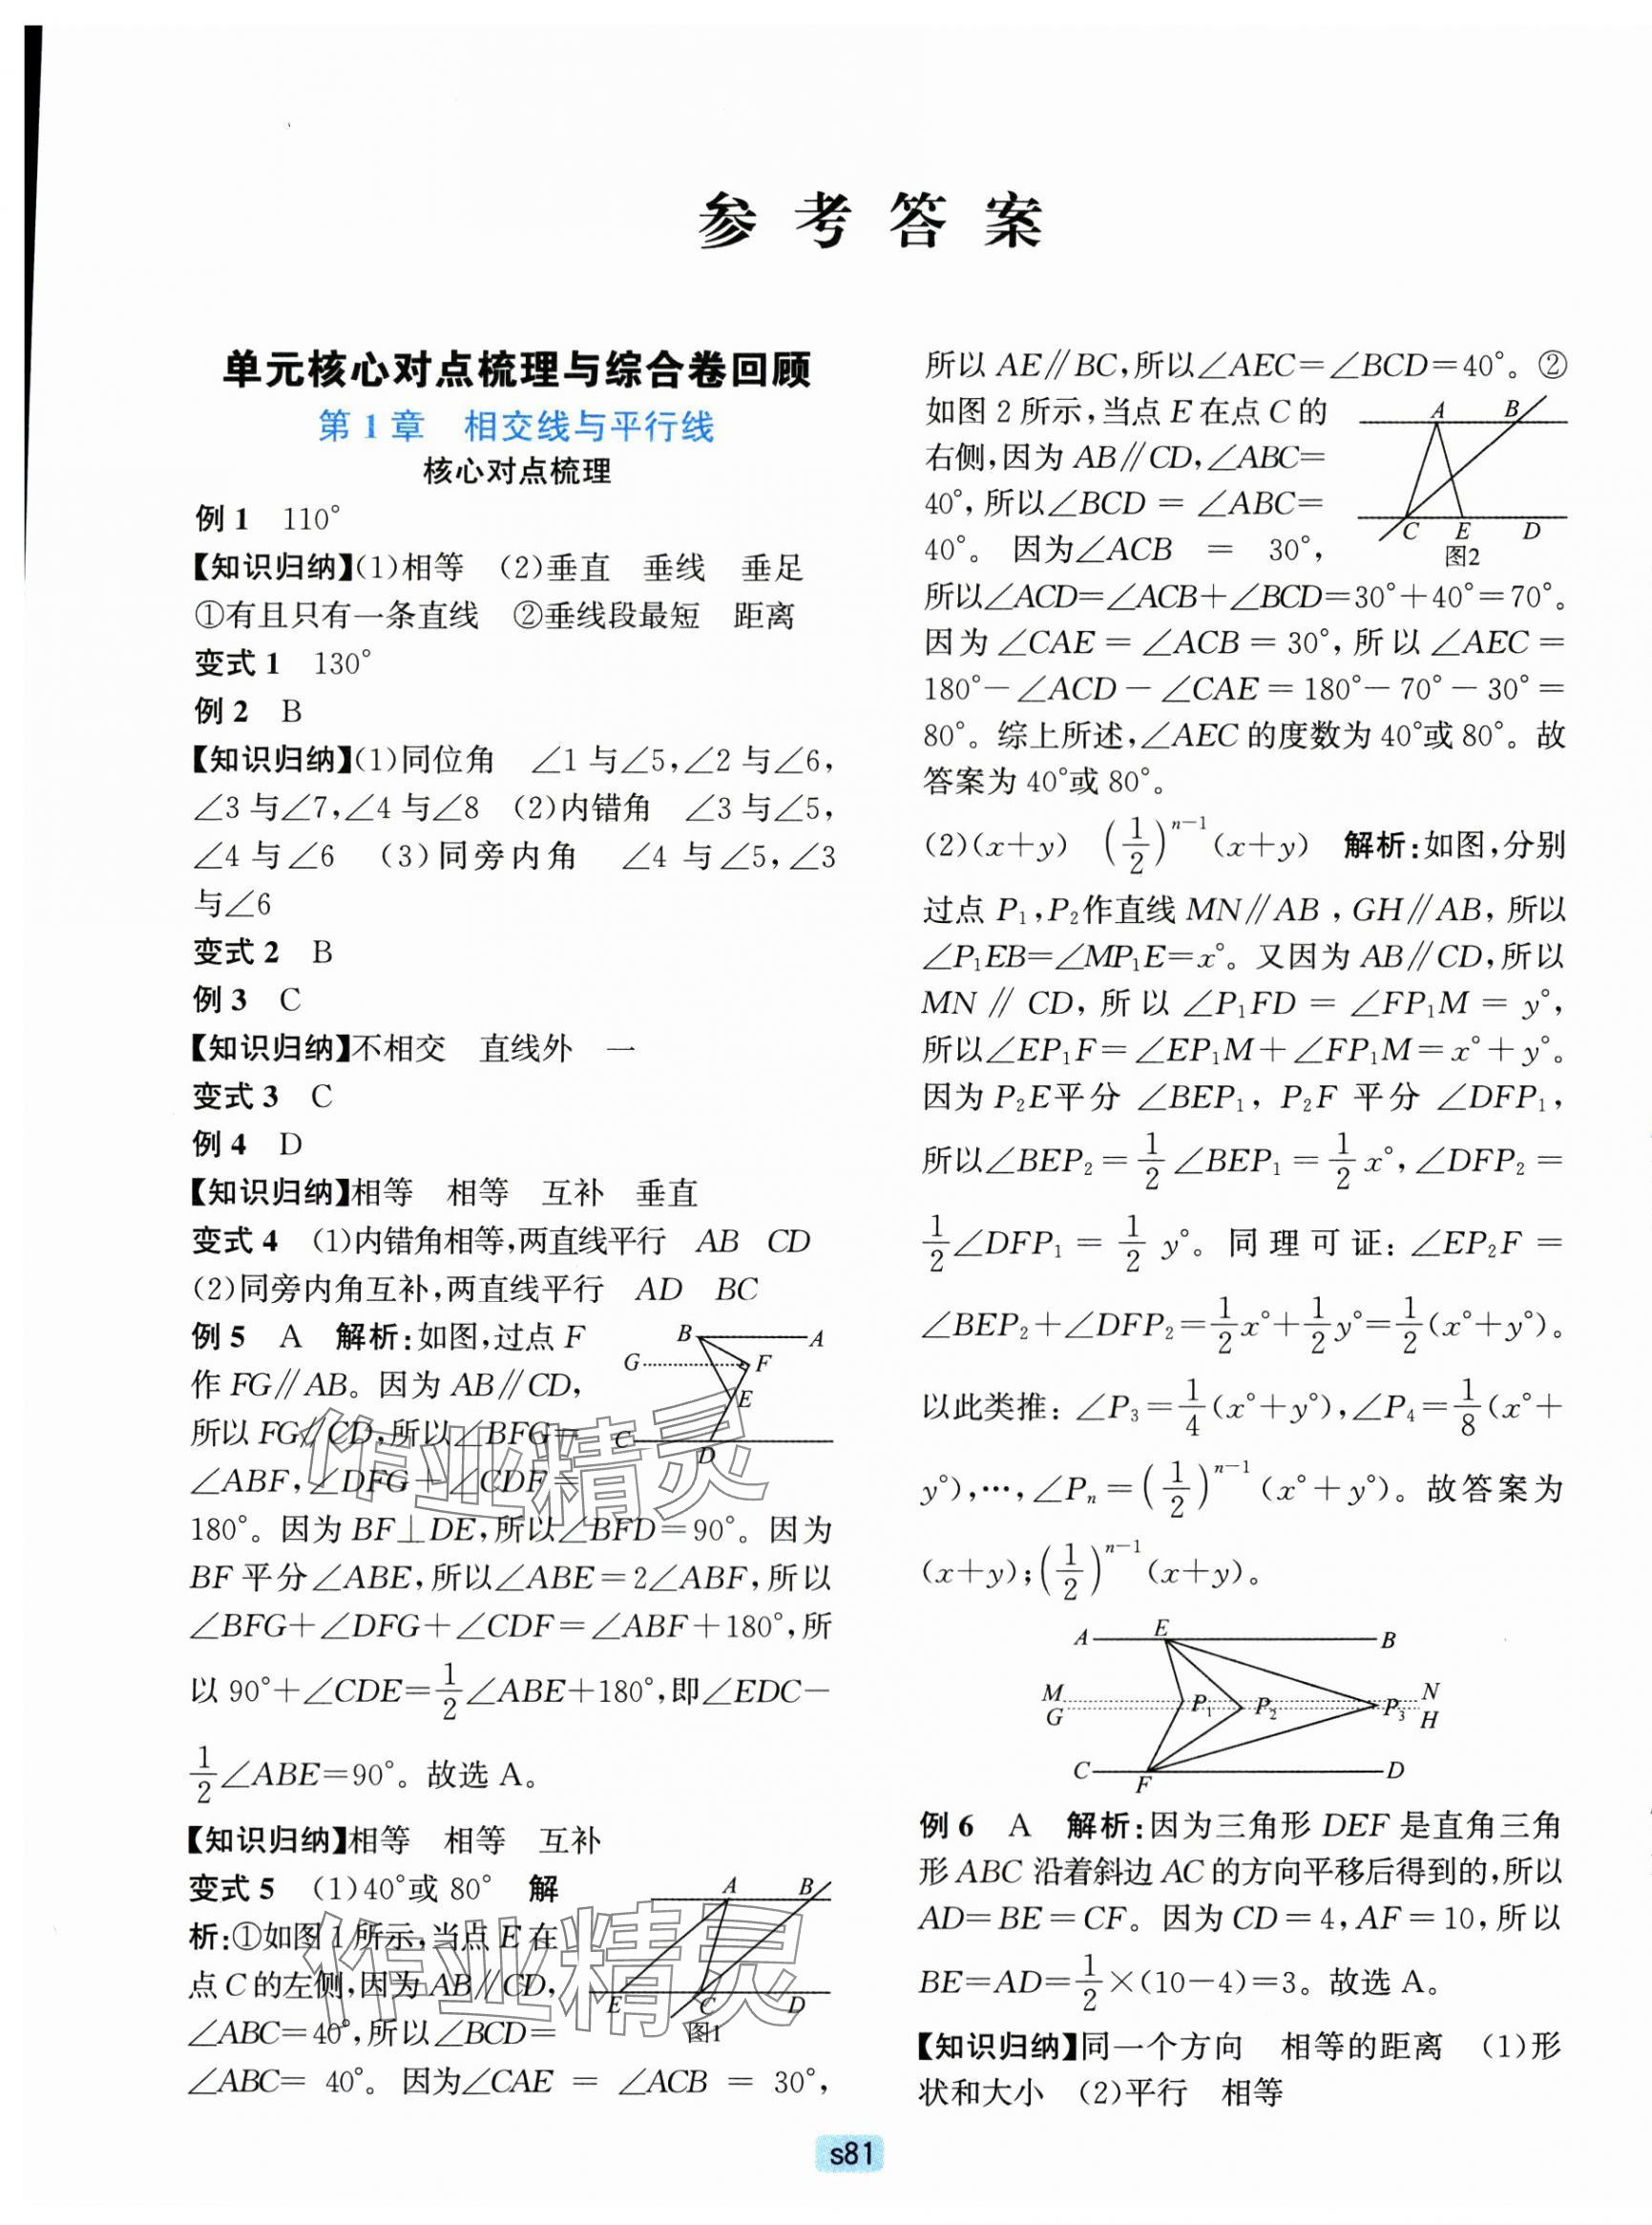 参考答案
单元核心对点梳理与综合卷回顾
第1章 相交线与平行线
核心对点梳理
例1 110°
【知识归纳】(1)相等 (2)垂直 垂线 垂足
①有且只有一条直线 ②垂线段最短 距离
变式1 130°
例2 B
【知识归纳】(1)同位角 ∠1与∠5,∠2与∠6,
∠3与∠7,∠4与∠8 (2)内错角 ∠3与∠5,
∠4与∠6 (3)同旁内角 ∠4与∠5,∠3
与∠6
变式2 B
例3 C
【知识归纳】不相交 直线外 一
变式3 C
例4 D
【知识归纳】相等 相等 互补 垂直
变式4 (1)内错角相等,两直线平行 AB CD
(2)同旁内角互补,两直线平行 AD BC
例5 A 解析:如图,过点F
作FG∥AB。因为AB∥CD,
所以FG∥CD,所以∠BFG=
∠ABF,∠DFG+∠CDF=
180°。因为BF⊥DE,所以∠BFD=90°。因为
BF平分∠ABE,所以∠ABE=2∠ABF,所以
∠BFG+∠DFG+∠CDF=∠ABF+180°,所
以90°+∠CDE=1/2∠ABE+180°,即∠EDC-
1/2∠ABE=90°。故选A。
B A
G F
E
C D
【知识归纳】相等 相等 互补
变式5 (1)40°或80° 解
析:①如图1所示,当点E在
点C的左侧,因为AB∥CD,
∠ABC=40°,所以∠BCD=
∠ABC= 40°。因为∠CAE = ∠ACB = 30°,
A B
E C D
图1
所以AE∥BC,所以∠AEC=∠BCD=40°。②
如图2所示,当点E在点C的
右侧,因为AB∥CD,∠ABC=
40°,所以∠BCD = ∠ABC=
40°。因为∠ACB = 30°,
A B
C E D
图2
所以∠ACD=∠ACB+∠BCD=30°+40°=70°。
因为∠CAE=∠ACB=30°,所以∠AEC=
180°-∠ACD-∠CAE=180°-70°-30°=
80°。综上所述,∠AEC的度数为40°或80°。故
答案为40°或80°。
(2)(x+y) (1/2)ⁿ⁻¹(x+y) 解析:如图,分别
过点P₁,P₂作直线MN∥AB,GH∥AB,所以
∠P₁EB=∠MP₁E=x°。又因为AB∥CD,所以
MN∥CD,所以∠P₁FD=∠FP₁M=y°,
所以∠EP₁F=∠EP₁M+∠FP₁M=x°+y°。
因为P₂E平分∠BEP₁,P₂F平分∠DFP₁,
所以∠BEP₂=1/2∠BEP₁=1/2x°,∠DFP₂=
1/2∠DFP₁=1/2y°。同理可证:∠EP₂F=
∠BEP₂+∠DFP₂=1/2x°+1/2y°=1/2(x°+y°)。
以此类推:∠P₃=1/4(x°+y°),∠P₄=1/8(x°+
y°),…,∠Pₙ=(1/2)ⁿ⁻¹(x°+y°)。故答案为
(x+y);(1/2)ⁿ⁻¹(x+y)。
A E B
M P₁ P₂ P₃ N
G H
C F D
例6 A 解析:因为三角形DEF是直角三角
形ABC沿着斜边AC的方向平移后得到的,所以
AD=BE=CF。因为CD=4,AF=10,所以
BE=AD=1/2×(10-4)=3。故选A。
【知识归纳】同一个方向 相等的距离 (1)形
状和大小 (2)平行 相等
作业精灵
作业精灵
s81